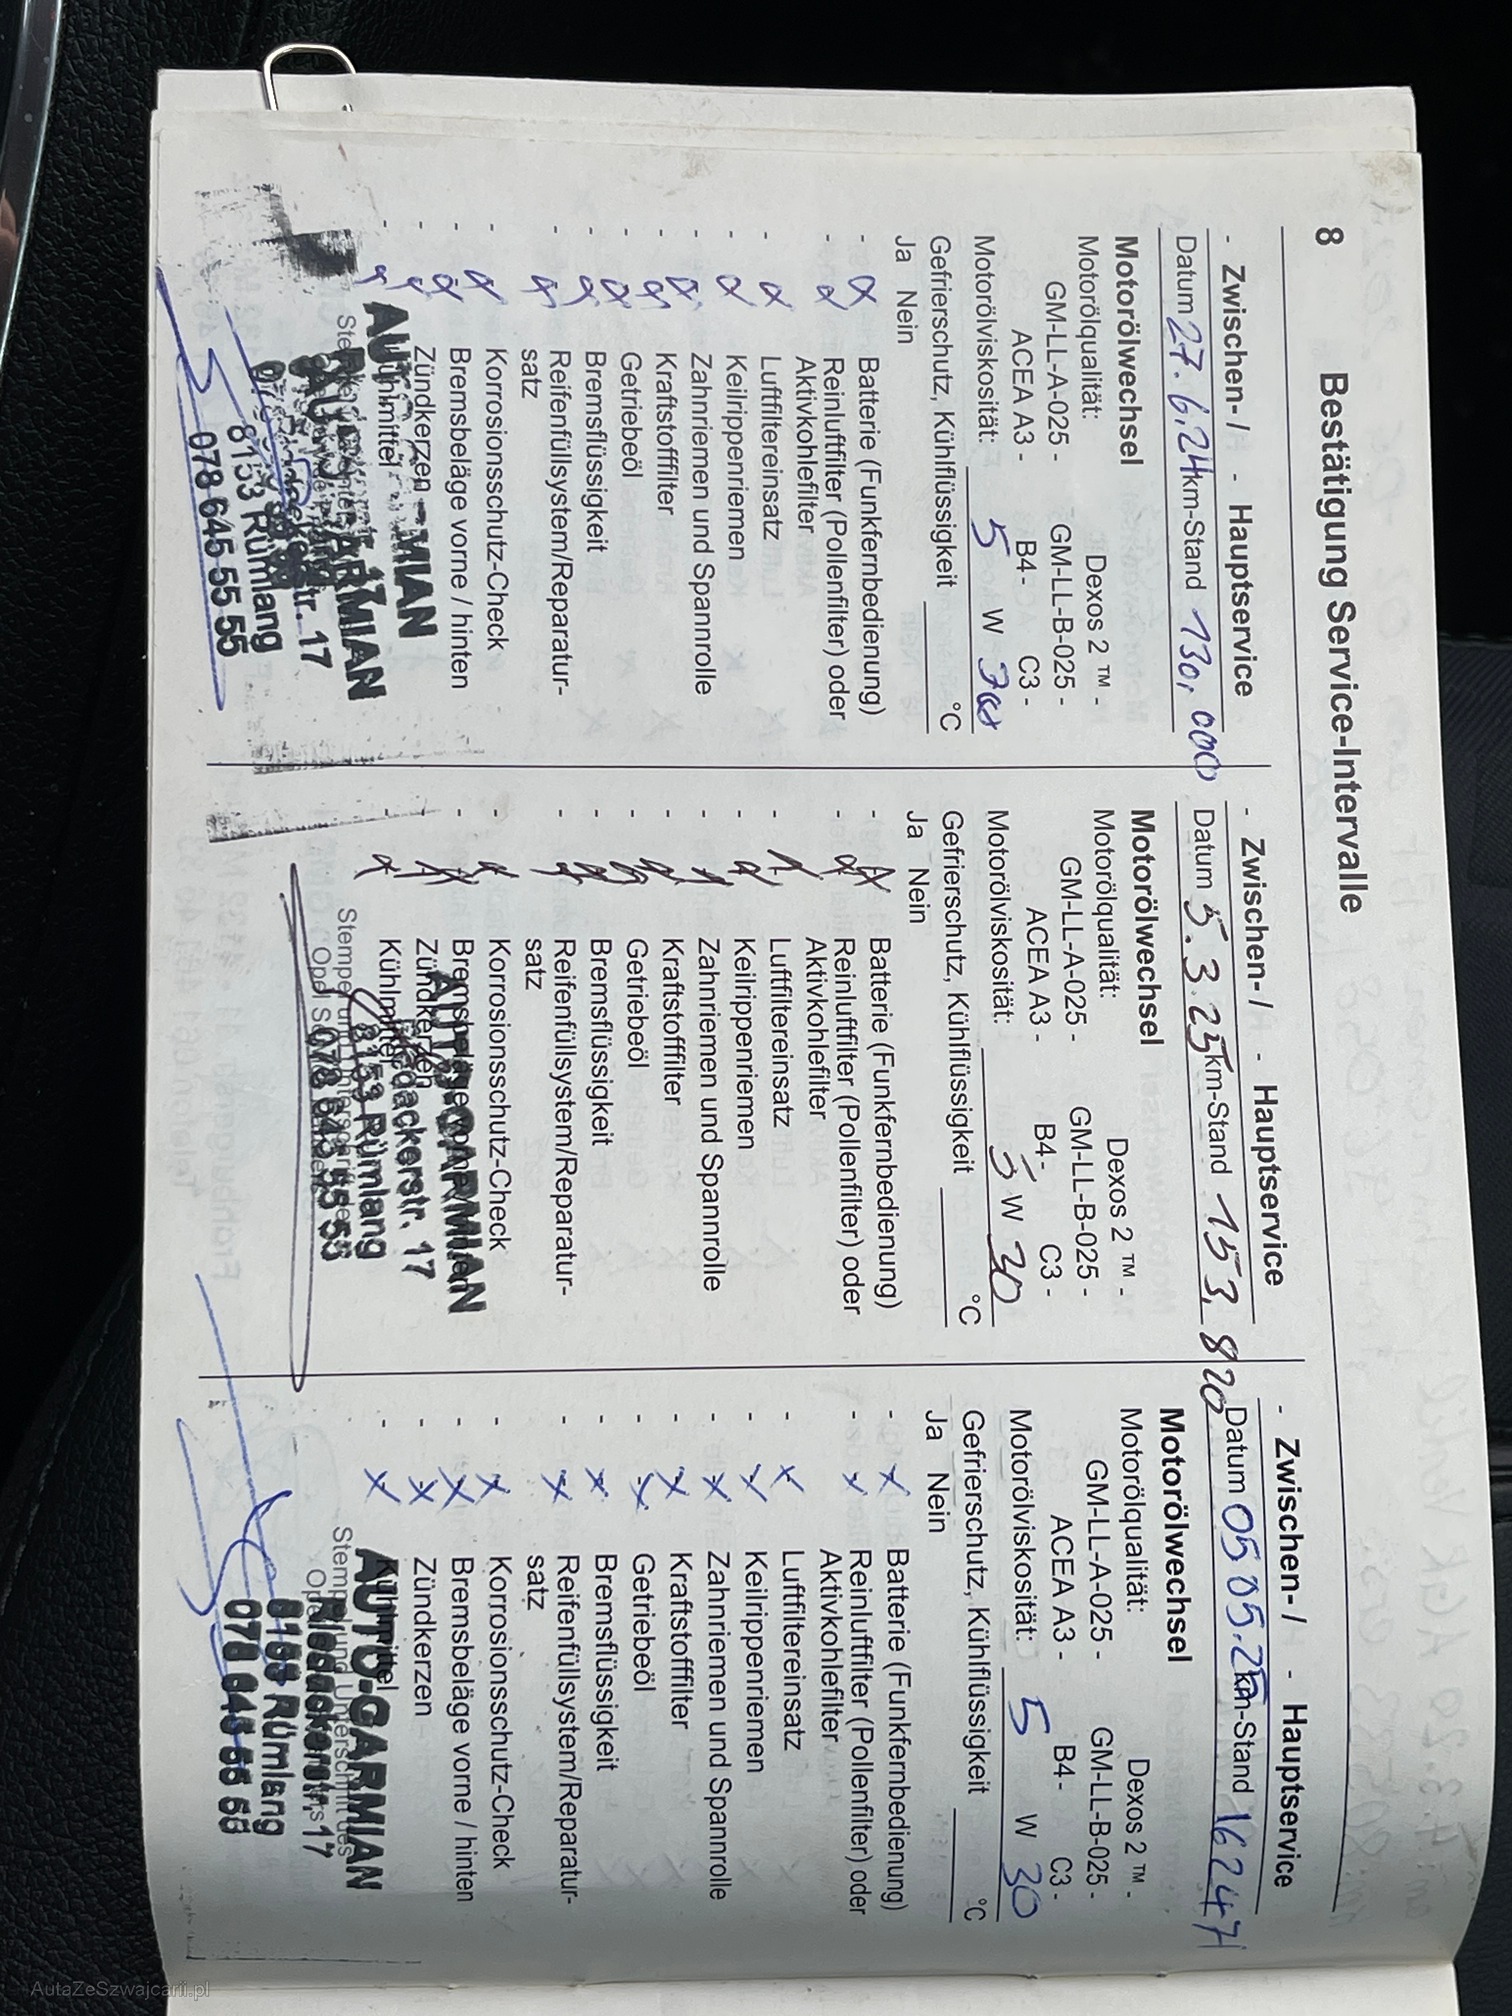 8 Bestätigung Service-Intervalle
- Zwischen- / - Hauptservice
Datum 27.6.24 km-Stand 130,000
Motorölwechsel
Motorölqualität: Dexos 2 ™ -
GM-LL-A-025 - GM-LL-B-025 -
ACEA A3 - B4- C3 -
Motorölviskosität: 5 W 30
Gefrierschutz, Kühlflüssigkeit °C
Ja Nein
- Batterie (Funkfernbedienung)
- Reinluftfilter (Pollenfilter) oder
Aktivkohlefilter
- Luftfiltereinsatz
- Keilrippenriemen
- Zahnriemen und Spannrolle
- Kraftstofffilter
- Getriebeöl
- Bremsflüssigkeit
- Reifenfüllsystem/Reparatur-
satz
- Korrosionsschutz-Check
- Bremsbeläge vorne / hinten
- Zündkerzen
- Kühlmittel
8153 Rümlang
078 645 55 55
- Zwischen- / - Hauptservice
Datum 5.3.25 km-Stand 153,820
Motorölwechsel
Motorölqualität: Dexos 2 ™ -
GM-LL-A-025 - GM-LL-B-025 -
ACEA A3 - B4- C3 -
Motorölviskosität: 5 W 30
Gefrierschutz, Kühlflüssigkeit °C
Ja Nein
- Batterie (Funkfernbedienung)
- Reinluftfilter (Pollenfilter) oder
Aktivkohlefilter
- Luftfiltereinsatz
- Keilrippenriemen
- Zahnriemen und Spannrolle
- Kraftstofffilter
- Getriebeöl
- Bremsflüssigkeit
- Reifenfüllsystem/Reparatur-
satz
- Korrosionsschutz-Check
- Bremsbeläge vorne / hinten
- Zündkerzen
- Kühlmittel
AUTO-GARMIAN
Riedackerstr. 17
8153 Rümlang
078 645 55 55
- Zwischen- / - Hauptservice
Datum 05.05.25 km-Stand 162471
Motorölwechsel
Motorölqualität: Dexos 2 ™ -
GM-LL-A-025 - GM-LL-B-025 -
ACEA A3 - B4- C3 -
Motorölviskosität: 5 W 30
Gefrierschutz, Kühlflüssigkeit °C
Ja Nein
- Batterie (Funkfernbedienung)
- Reinluftfilter (Pollenfilter) oder
Aktivkohlefilter
- Luftfiltereinsatz
- Keilrippenriemen
- Zahnriemen und Spannrolle
- Kraftstofffilter
- Getriebeöl
- Bremsflüssigkeit
- Reifenfüllsystem/Reparatur-
satz
- Korrosionsschutz-Check
- Bremsbeläge vorne / hinten
- Zündkerzen
- Kühlmittel
Stempel und Unterschrift des
AUTO-GARMIAN
Riedackerstr. 17
8153 Rümlang
078 645 55 55
AutaZeSzwajcarii.pl